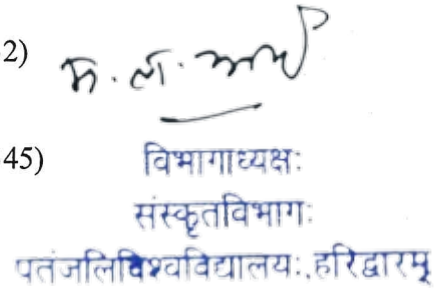 2)
45)
विभागाध्यक्षः
संस्कृतविभागः
पतंजलिविश्वविद्यालयः,हरिद्वारम्